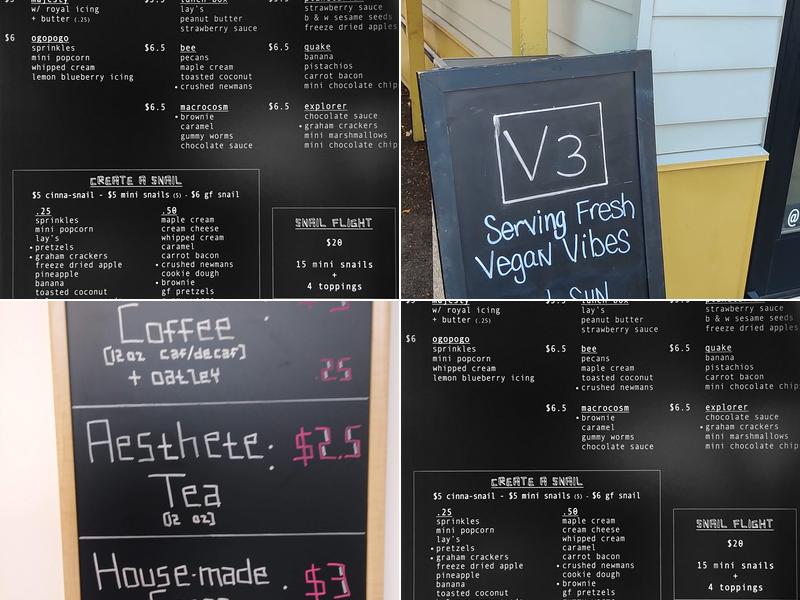 majesty
w/ royal icing
+ butter (.25)
$6 ogopogo
sprinkles
mini popcorn
whipped cream
lemon blueberry icing
lunch box
lay's
peanut butter
strawberry sauce
$6.5 bee
pecans
maple cream
toasted coconut
• crushed newmans
$6.5 macrocosm
• brownie
caramel
gummy worms
chocolate sauce
strawberry sauce
b & w sesame seeds
freeze dried apples
$6.5 quake
banana
pistachios
carrot bacon
mini chocolate chip
$6.5 explorer
chocolate sauce
• graham crackers
mini marshmallows
mini chocolate chip
CREATE A SNAIL
$5 cinna-snail - $5 mini snails (5) - $6 gf snail
.25
sprinkles
mini popcorn
lay's
• pretzels
• graham crackers
freeze dried apple
pineapple
banana
toasted coconut
.50
maple cream
cream cheese
whipped cream
caramel
carrot bacon
• crushed newmans
cookie dough
• brownie
gf pretzels
SNAIL FLIGHT
$20
15 mini snails
+
4 toppings
V3
Serving Fresh
Vegan Vibes
SUN
@
Coffee
[12oz caf/decaf]
+ oatley .25
Aesthete: $2.5
Tea
[12 oz]
House-made $3
majesty
w/ royal icing
+ butter (.25)
$6 ogopogo
sprinkles
mini popcorn
whipped cream
lemon blueberry icing
lunch box
lay's
peanut butter
strawberry sauce
$6.5 bee
pecans
maple cream
toasted coconut
• crushed newmans
$6.5 macrocosm
• brownie
caramel
gummy worms
chocolate sauce
strawberry sauce
b & w sesame seeds
freeze dried apples
$6.5 quake
banana
pistachios
carrot bacon
mini chocolate chip
$6.5 explorer
chocolate sauce
• graham crackers
mini marshmallows
mini chocolate chip
CREATE A SNAIL
$5 cinna-snail - $5 mini snails (5) - $6 gf snail
.25
sprinkles
mini popcorn
lay's
• pretzels
• graham crackers
freeze dried apple
pineapple
banana
toasted coconut
.50
maple cream
cream cheese
whipped cream
caramel
carrot bacon
• crushed newmans
cookie dough
• brownie
gf pretzels
SNAIL FLIGHT
$20
15 mini snails
+
4 toppings